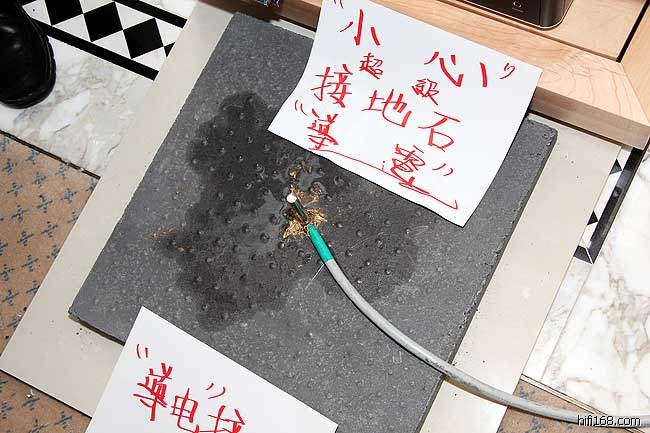 “小心”
超級
接地石
“導電”
“導电”
hifi168.com